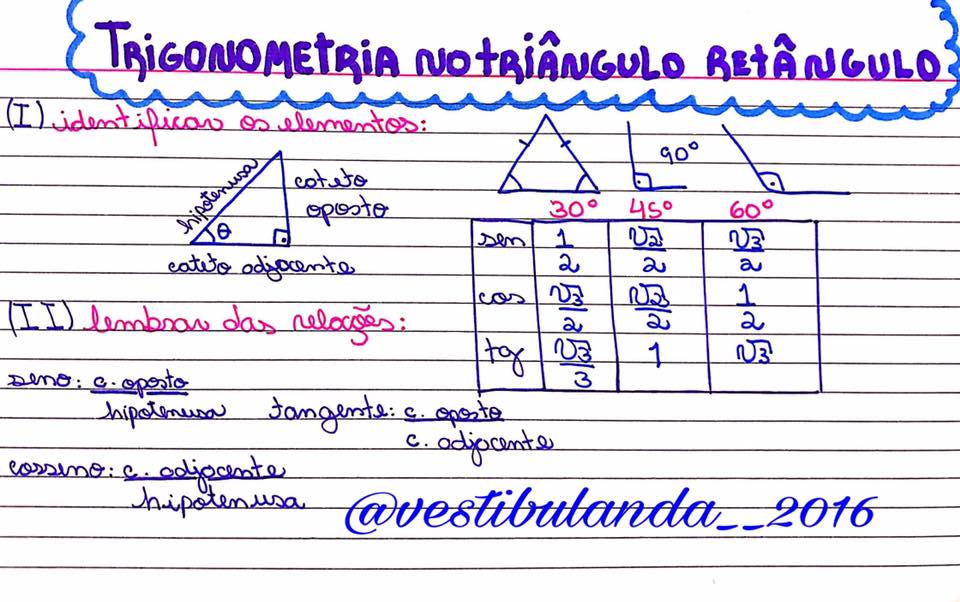 TRIGONOMETRIA NO TRIÂNGULO RETÂNGULO
(I) identificar os elementos:
hipotenusa
θ
cateto
oposto
cateto adjacente
90°
30° 45° 60°
sen 1/2 √2/2 √3/2
cos √3/2 √2/2 1/2
tg √3/3 1 √3
(II) lembrar das relações:
seno: c. oposto
hipotenusa
tangente: c. oposto
c. adjacente
cosseno: c. adjacente
hipotenusa
@vestibulanda__2016